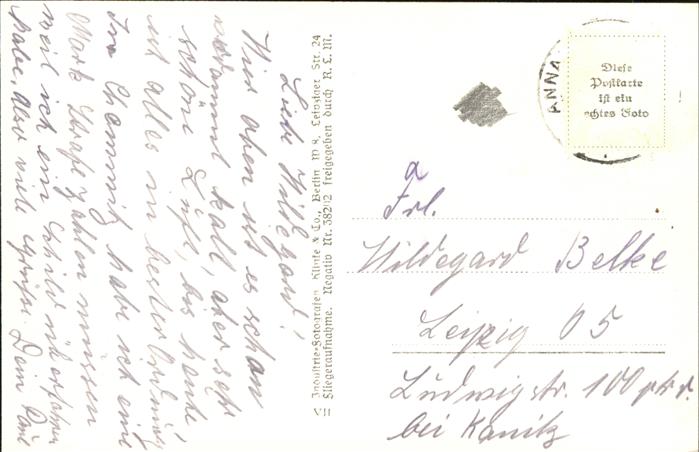 Liebe Hildegard!
Hier oben ist es schon
verdammt kalt, aber sehr
schöne Luft, bis heute
ist alles in bester Ordnung
In Chemnitz habe ich eine
Mark Strafe zahlen müssen
weil ich ein Schild überfahren
habe. Also viele Grüße. Dein Paul
VII
Industrie-Fotografen Klinke & Co., Berlin W 8, Leipziger Str. 24
Fliegeraufnahme. Negativ Nr. 38292 freigegeben durch R. L. M.
ANNA
Diese
Postkarte
ist ein
echtes Foto
a
Frl.
Hildegard Belke
Leipzig O 5
Ludwigstr. 100 ptr. r.
bei Kanitz